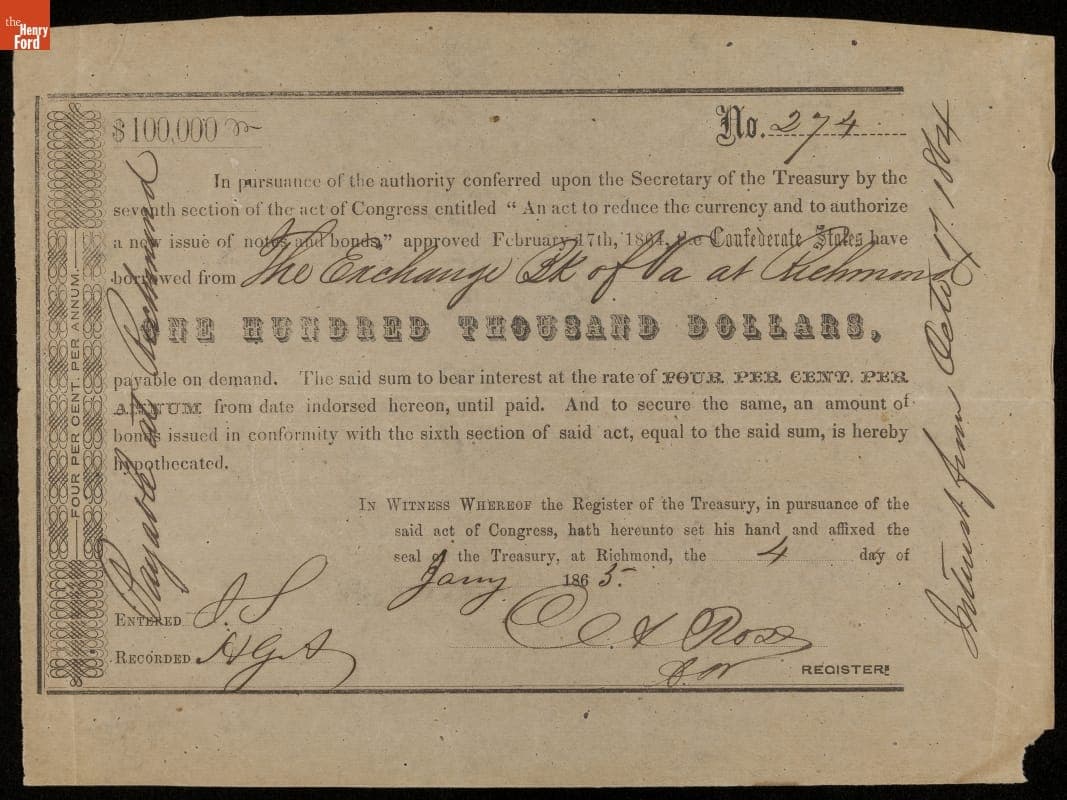 the
Henry
Ford
$100,000
No. 274
In pursuance of the authority conferred upon the Secretary of the Treasury by the
seventh section of the act of Congress entitled “ An act to reduce the currency and to authorize
a new issue of notes and bonds,” approved February 17th, 1864, the Confederate States have
borrowed from The Exchange Bk of Va at Richmond
ONE HUNDRED THOUSAND DOLLARS,
payable on demand. The said sum to bear interest at the rate of FOUR PER CENT. PER
ANNUM from date indorsed hereon, until paid. And to secure the same, an amount of
bonds issued in conformity with the sixth section of said act, equal to the said sum, is hereby
hypothecated.
IN WITNESS WHEREOF the Register of the Treasury, in pursuance of the
said act of Congress, hath hereunto set his hand and affixed the
seal of the Treasury, at Richmond, the 4 day of
Jany 1865.
ENTERED J.S.
RECORDED HGA
Rose
REGISTER.
FOUR PER CENT. PER ANNUM.
Payable at Richmond
Interest from Octo 17. 1864